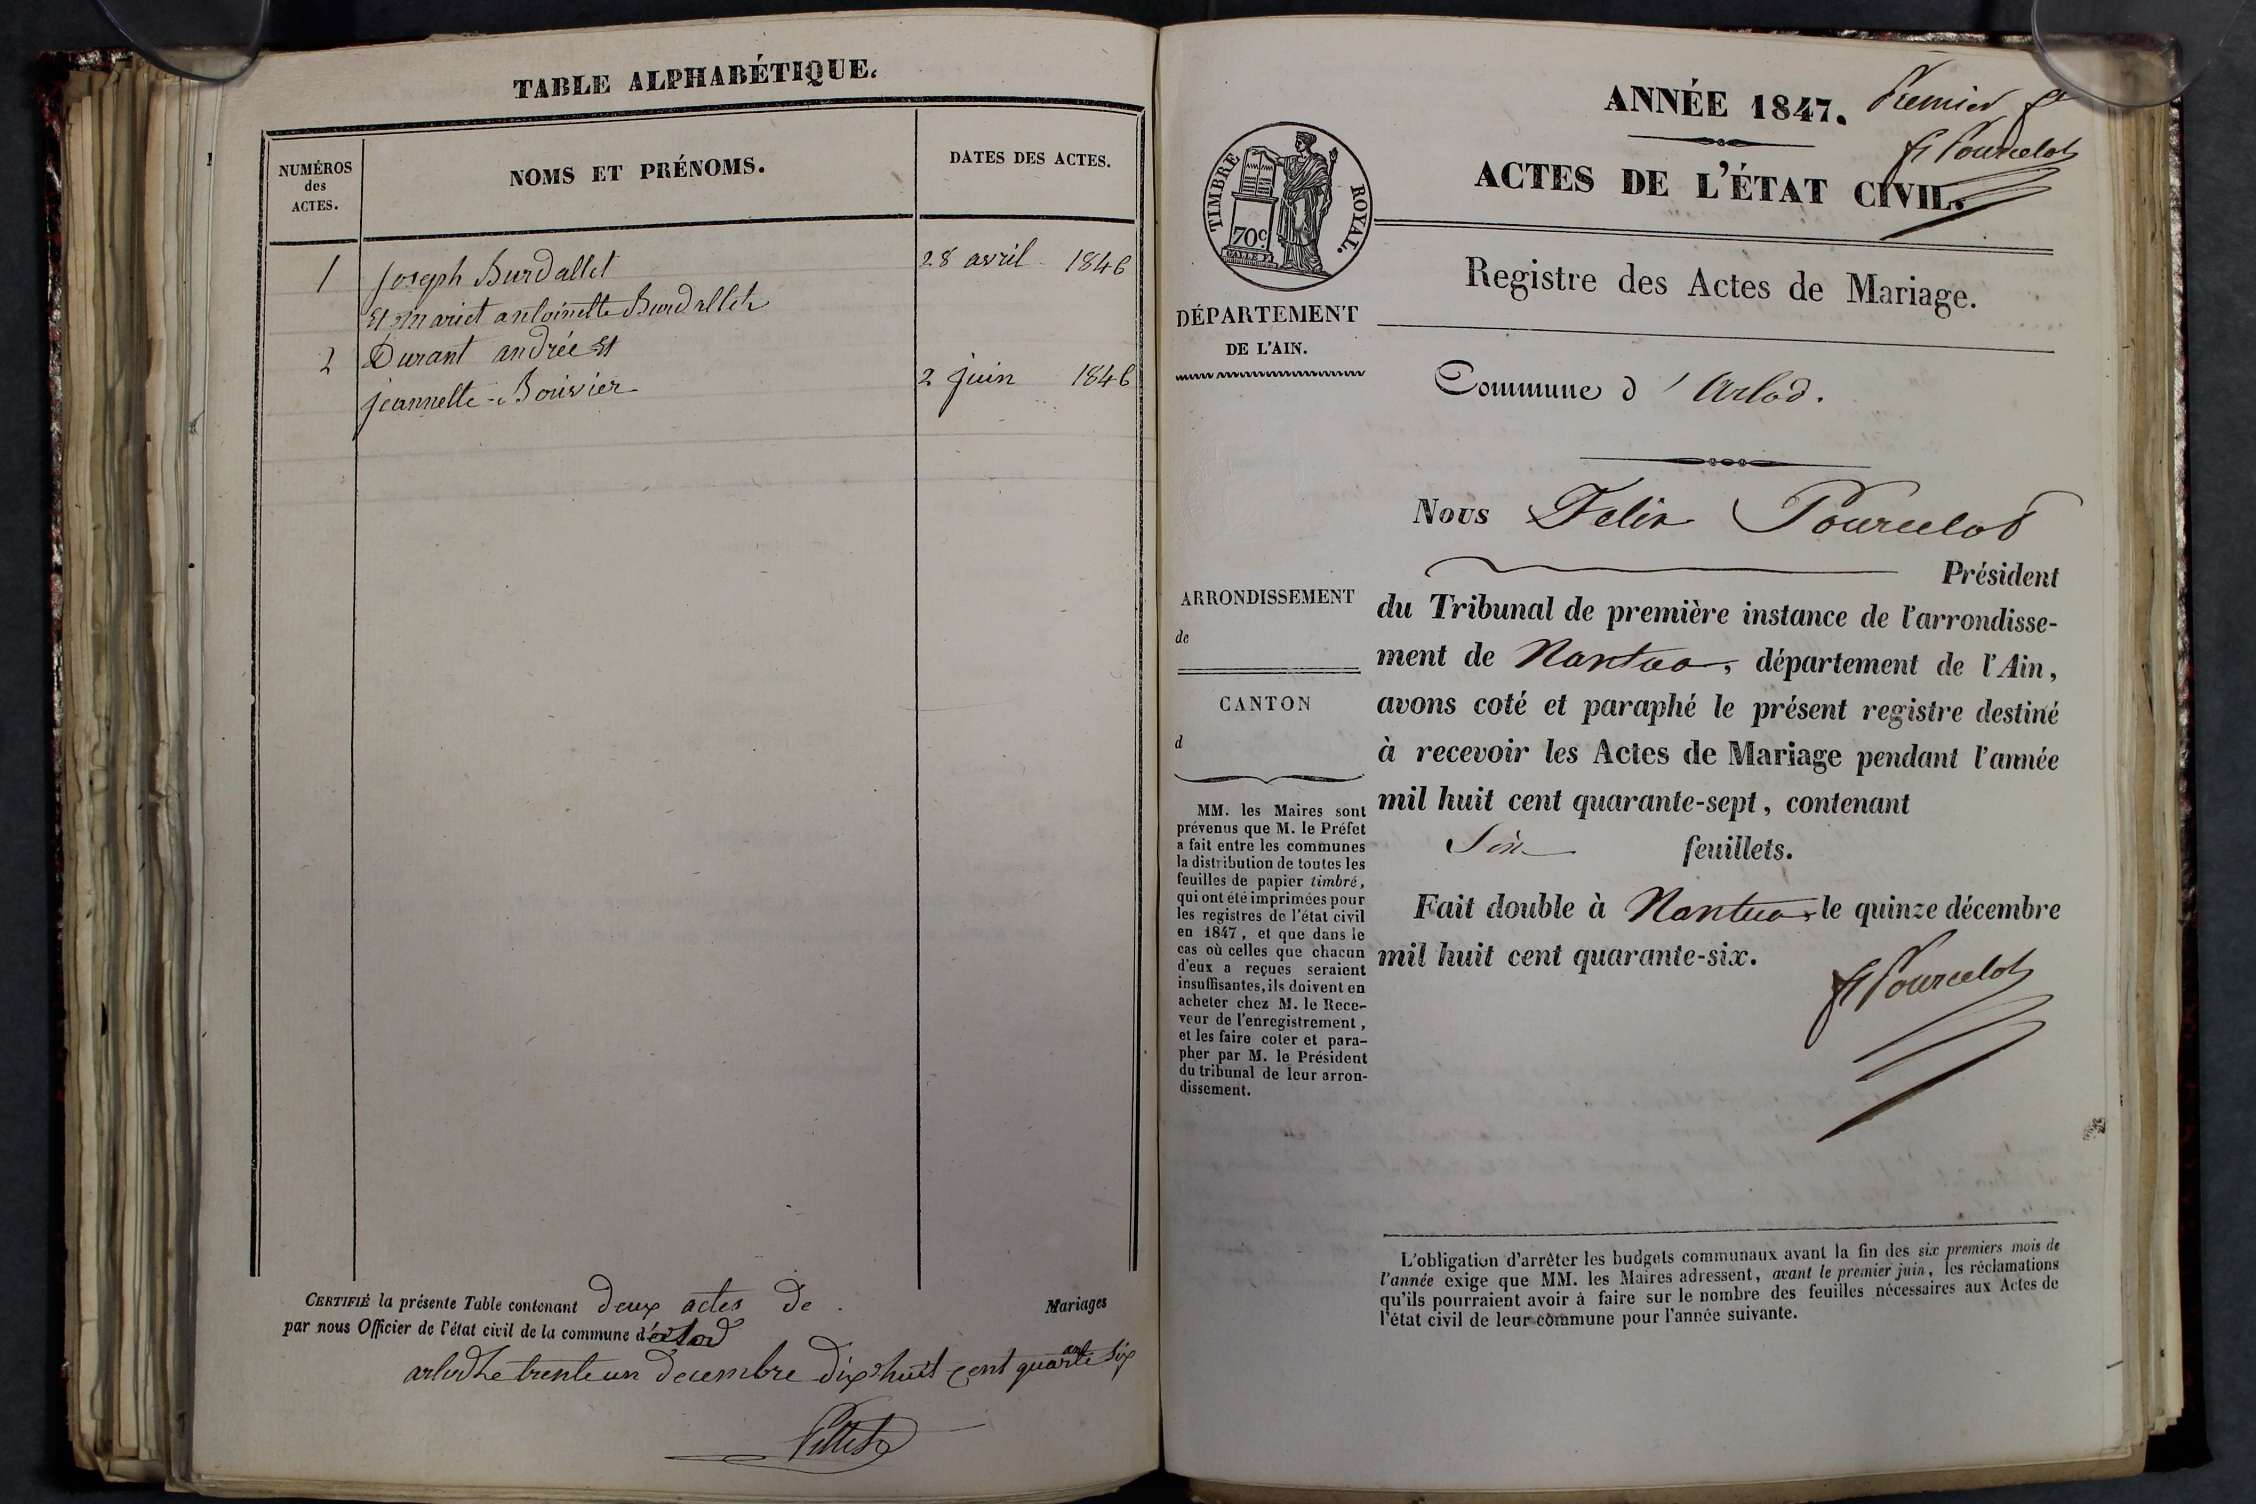 TABLE ALPHABÉTIQUE.
NUMÉROS
des
ACTES.
NOMS ET PRÉNOMS.
DATES DES ACTES.
1 Joseph Burdallet 28 avril 1846
Et mariet antoinette Burdallet
2 Durant andrée Et
jeannette Bouvier 2 juin 1846
CERTIFIÉ la présente Table contenant deux actes de Mariages
par nous Officier de l'état civil de la commune d'arlod
arlod Le trente un decembre dix huit cent quarante six
ANNÉE 1847. Premier
F Pourcelot
ACTES DE L'ÉTAT CIVIL.
TIMBRE ROYAL.
70c
Registre des Actes de Mariage.
DÉPARTEMENT
DE L'AIN.
Commune d'Arlod.
Nous Felix Pourcelot
Président
du Tribunal de première instance de l'arrondisse-
ment de Nantua, département de l'Ain,
avons coté et paraphé le présent registre destiné
à recevoir les Actes de Mariage pendant l'année
mil huit cent quarante-sept, contenant
Six feuillets.
Fait double à Nantua le quinze décembre
mil huit cent quarante-six.
F Pourcelot
ARRONDISSEMENT
de
CANTON
d
MM. les Maires sont
prévenus que M. le Préfet
a fait entre les communes
la distribution de toutes les
feuilles de papier timbré,
qui ont été imprimées pour
les registres de l'état civil
en 1847, et que dans le
cas où celles que chacun
d'eux a reçues seraient
insuffisantes, ils doivent en
acheter chez M. le Rece-
veur de l'enregistrement,
et les faire coter et para-
pher par M. le Président
du tribunal de leur arron-
dissement.
L'obligation d'arrêter les budgets communaux avant la fin des six premiers mois de
l'année exige que MM. les Maires adressent, avant le premier juin, les réclamations
qu'ils pourraient avoir à faire sur le nombre des feuilles nécessaires aux Actes de
l'état civil de leur commune pour l'année suivante.